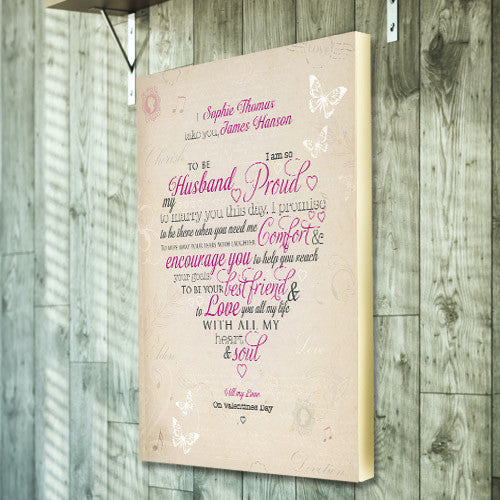 I Sophie Thomas
take you, James Hanson
TO BE I am so
my Husband Proud
to marry you this day. I promise
to be there when you need me Comfort &
TO WIPE AWAY YOUR TEARS WITH LAUGHTER,
encourage you to help you reach
your goals.
TO BE YOUR best friend &
to Love you all my life
WITH ALL MY
heart
& soul
All my Love
On Valentines Day